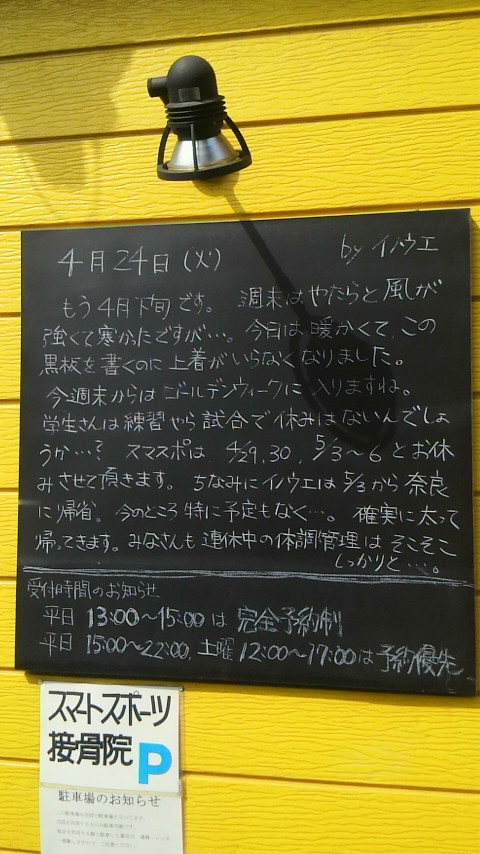 4月24日(火) by イノウエ
もう4月下旬です。 週末はやたらと風が
強くて寒かったですが…。今日は暖かくて、この
黒板を書くのに上着がいらなくなりました。
今週末からはゴールデンウィークに入りますね。
学生さんは練習やら試合で休みはないんでしょ
うか…? スマスポは 4/29,30, 5/3〜6 とお休
みさせて頂きます。ちなみにイノウエは 5/3から奈良
に帰省。今のところ特に予定もなく…。確実に太って
帰ってきます。みなさんも連休中の体調管理はそこそこ
しっかりと…。
受付時間のお知らせ
平日 13:00〜15:00は 完全予約制
平日 15:00〜22:00, 土曜12:00〜17:00は予約優先
スマートスポーツ
接骨院 P
駐車場のお知らせ